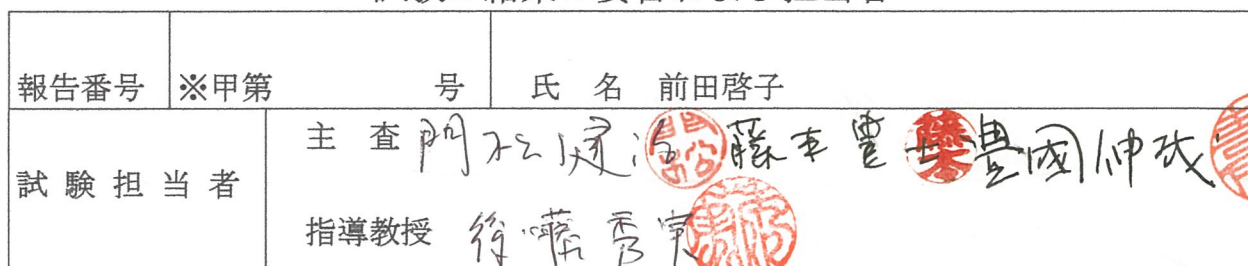 報告番号 ※甲第 号 氏 名 前田啓子
試験担当者 主 査 門松健治 藤本豊 豊國伸哉
指導教授 後藤秀実